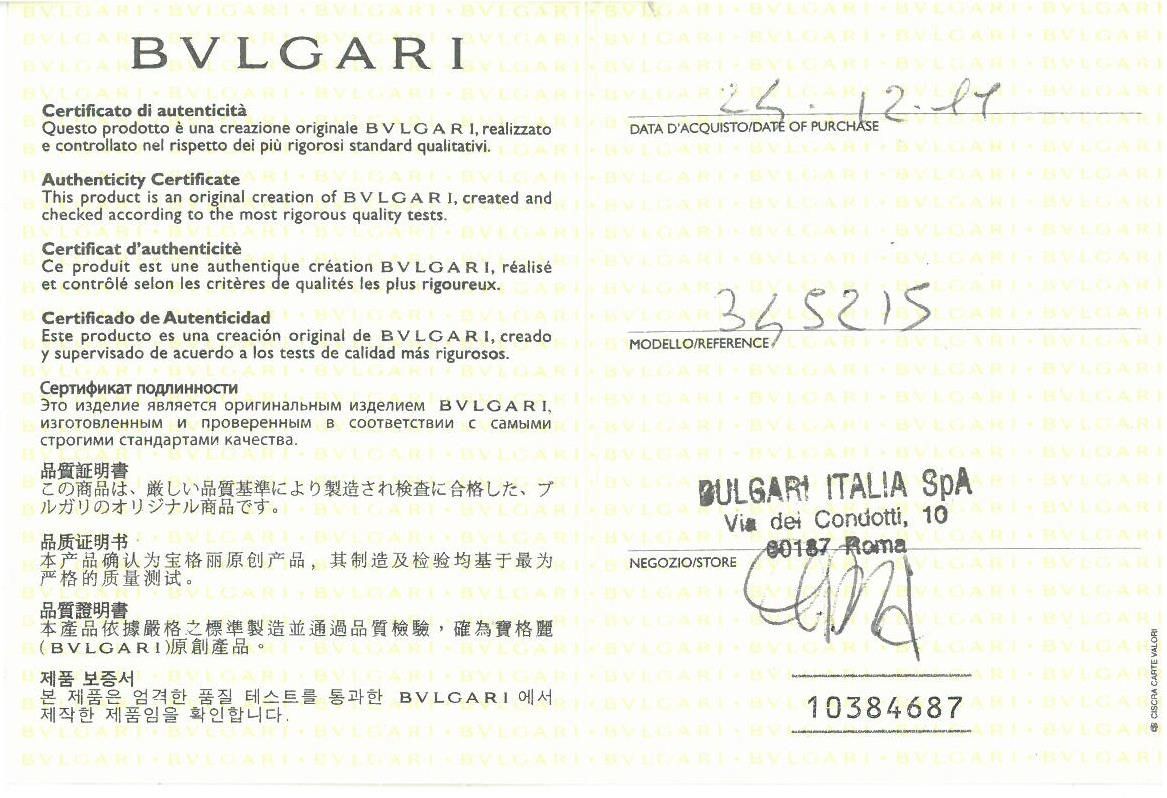 BVLGARI
Certificato di autenticità
Questo prodotto è una creazione originale BVLGARI, realizzato
e controllato nel rispetto dei più rigorosi standard qualitativi.
Authenticity Certificate
This product is an original creation of BVLGARI, created and
checked according to the most rigorous quality tests.
Certificat d'authenticitè
Ce produit est une authentique création BVLGARI, réalisé
et contrôlé selon les critères de qualités les plus rigoureux.
Certificado de Autenticidad
Este producto es una creación original de BVLGARI, creado
y supervisado de acuerdo a los tests de calidad más rigurosos.
Сертификат подлинности
Это изделие является оригинальным изделием BVLGARI,
изготовленным и проверенным в соответствии с самыми
строгими стандартами качества.
品質証明書
この商品は、厳しい品質基準により製造され検査に合格した、ブ
ルガリのオリジナル商品です。
品质证明书
本产品确认为宝格丽原创产品，其制造及检验均基于最为
严格的质量测试。
品質證明書
本產品依據嚴格之標準製造並通過品質檢驗，確為寶格麗
(BVLGARI)原創產品。
제품 보증서
본 제품은 엄격한 품질 테스트를 통과한 BVLGARI 에서
제작한 제품임을 확인합니다.
DATA D'ACQUISTO/DATE OF PURCHASE
345215
MODELLO/REFERENCE
BULGARI ITALIA SpA
Via dei Condotti, 10
00187 Roma
NEGOZIO/STORE
10384687
CISCRA CARTE VALORI